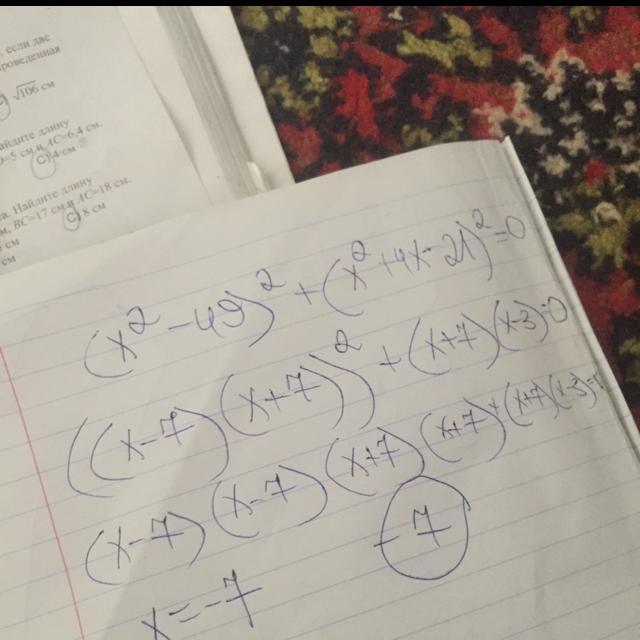 если две
проведенная
√106 см
Найдите длину
AC=6,4 см.
4 см
Найдите длину
BC=17 см и AC=18 см
C) 8 см
см
см
(x² - 49)² + (x² + 4x - 21)² = 0
((x-7)(x+7))² + (x+7)(x-3)=0
(x-7)(x-7)(x+7)(x+7)+(x+7)(x-3)=
x = -7
-7